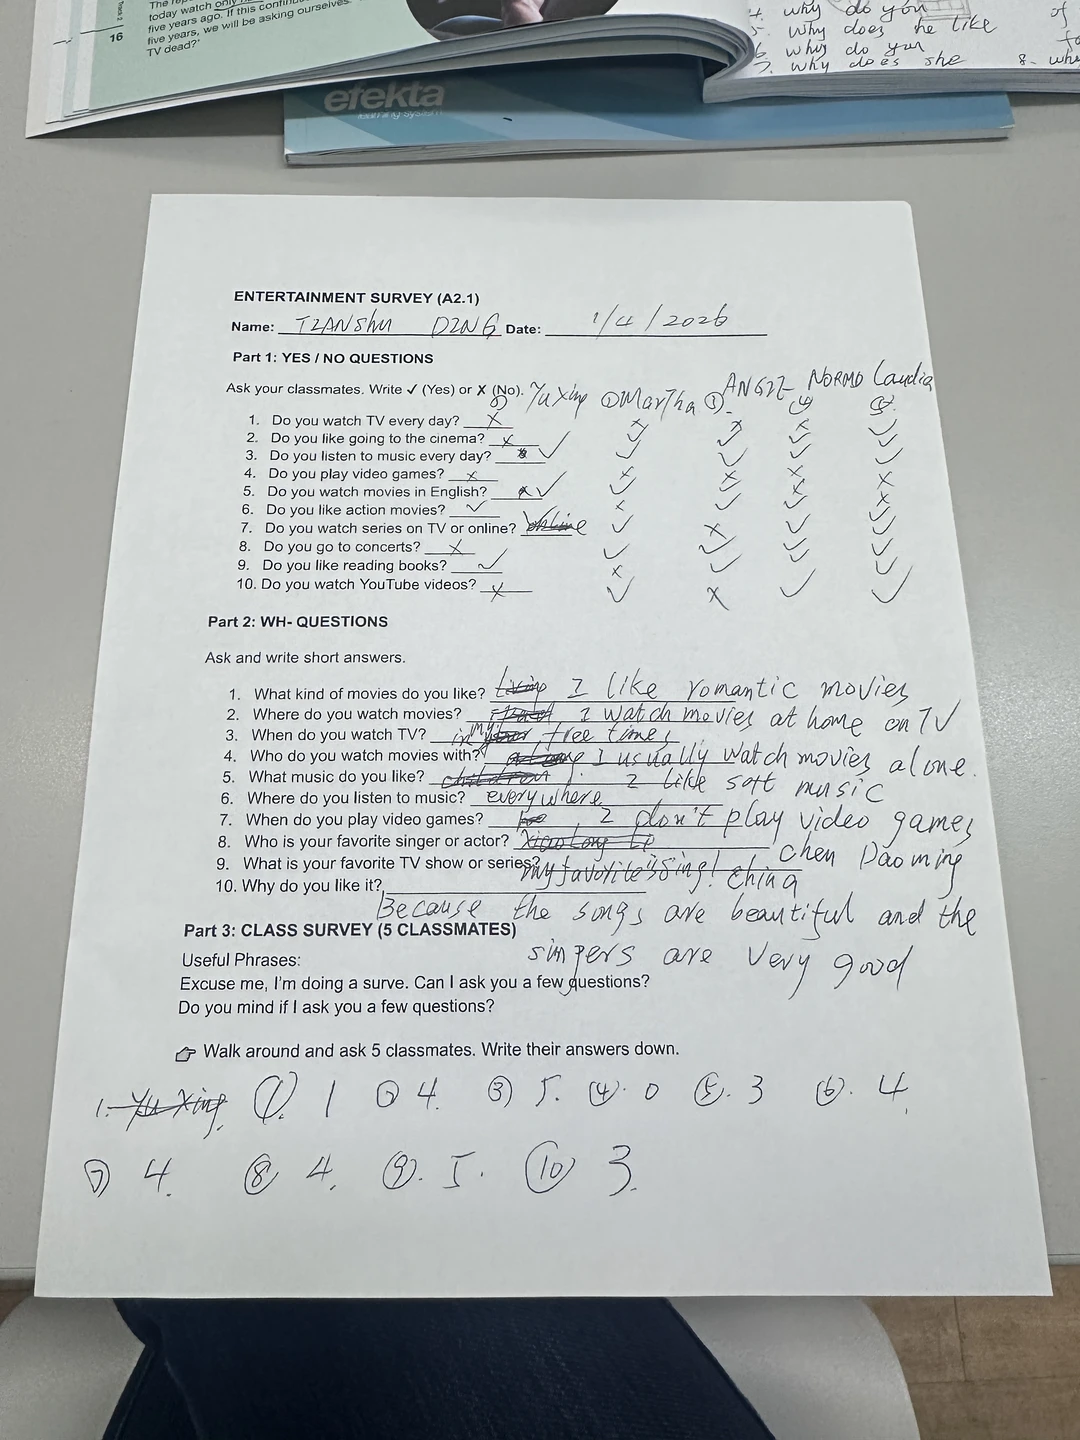 The
today watch only
five years ago. If this contin
five years, we will be asking ourselves
TV dead?'
16
Track 2
4. why do you
5. Why does he like
6. why do you
7. why does she
8. why
of
efekta
learning system
ENTERTAINMENT SURVEY (A2.1)
Name: TIANShu DING Date: 1/4/2026
Part 1: YES / NO QUESTIONS
Ask your classmates. Write ✓ (Yes) or ✗ (No). Yuxing ② Martha ③ ANGIE NORMD Claudia
④ ⑤
1. Do you watch TV every day? ✗ ✗ ✗ ✗ ✓
2. Do you like going to the cinema? ✗ ✓ ✓ ✓ ✓
3. Do you listen to music every day? ✓ ✓ ✓ ✓ ✓
4. Do you play video games? ✗ ✗ ✗ ✗ ✗
5. Do you watch movies in English? ✓ ✓ ✓ ✗ ✗
6. Do you like action movies? ✓ ✗ ✓ ✓ ✓
7. Do you watch series on TV or online? online ✓ ✗ ✓ ✓
8. Do you go to concerts? ✗ ✓ ✓ ✓ ✓
9. Do you like reading books? ✓ ✗ ✓ ✓ ✓
10. Do you watch YouTube videos? ✗ ✓ ✗ ✓ ✓
Part 2: WH- QUESTIONS
Ask and write short answers.
1. What kind of movies do you like? I like romantic movies
2. Where do you watch movies? I watch movies at home on TV
3. When do you watch TV? in my free time
4. Who do you watch movies with? I usually watch movies alone.
5. What music do you like? children I like soft music
6. Where do you listen to music? everywhere
7. When do you play video games? I don't play video games
8. Who is your favorite singer or actor? Xiao Long Li Chen Daoming
9. What is your favorite TV show or series? my favorite is sing! china
10. Why do you like it?
Because the songs are beautiful and the
Part 3: CLASS SURVEY (5 CLASSMATES)
singers are very good
Useful Phrases:
Excuse me, I'm doing a surve. Can I ask you a few questions?
Do you mind if I ask you a few questions?
☞ Walk around and ask 5 classmates. Write their answers down.
1. Yu Xing. ①. 1 ② 4. ③ 5. ④. 0 ⑤. 3 ⑥. 4
⑦ 4. ⑧ 4. ⑨. 5. ⑩ 3.